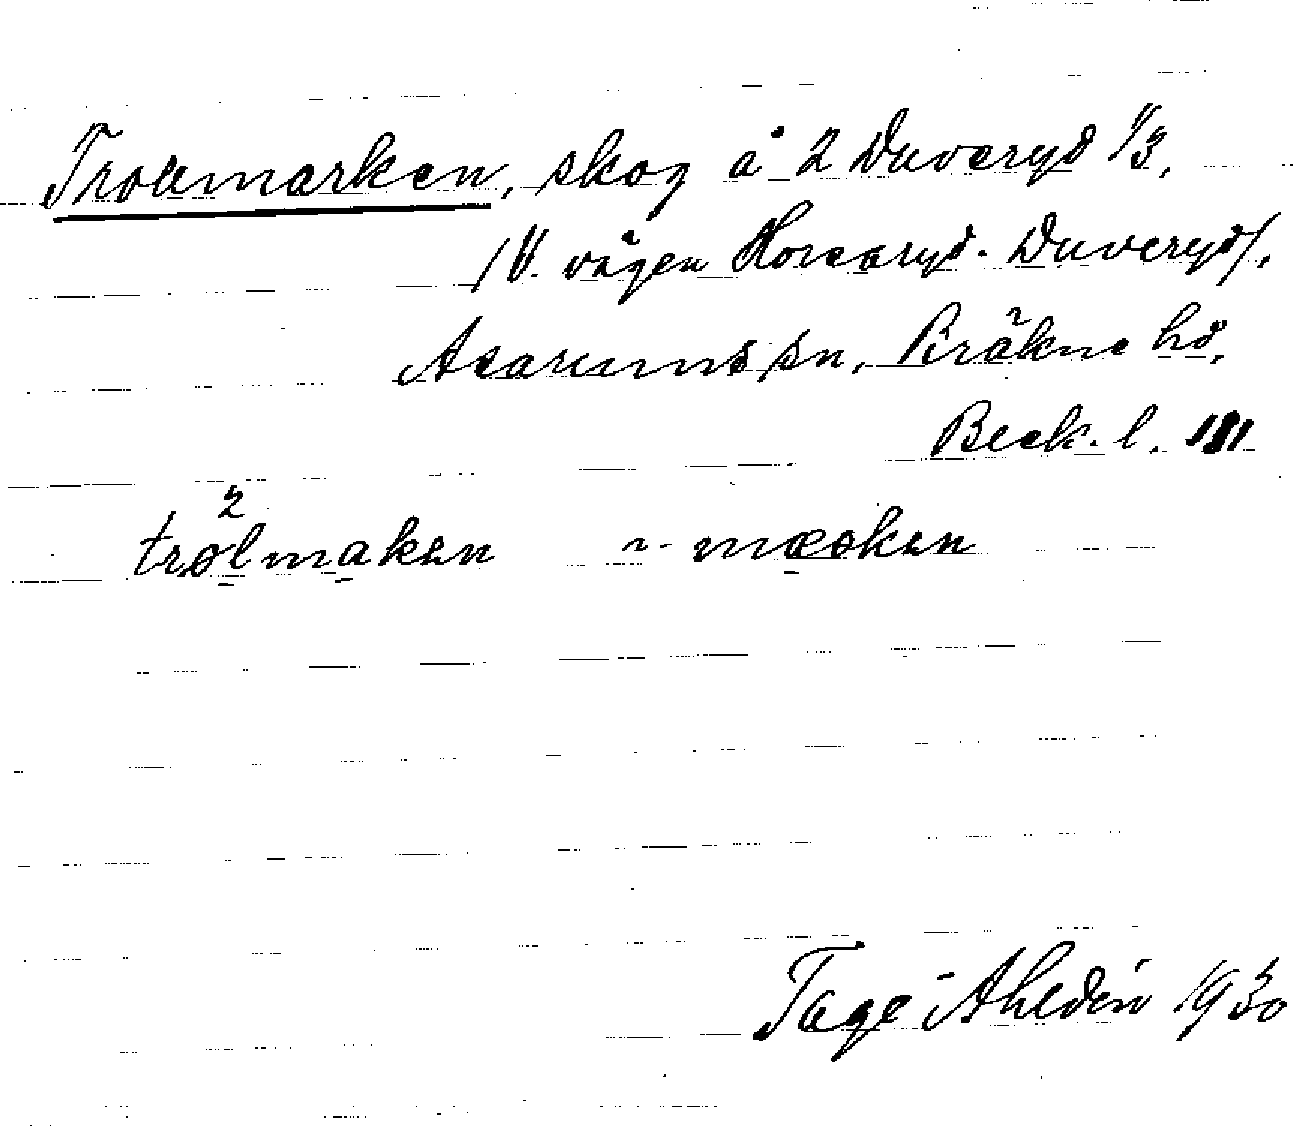 Trollmarken, skog å 2 Duveryd 1/3,
/V. vägen Horsaryd - Duveryd/,
Asarums sn, Bräkne hd,
Bleck. l.
2
trolmakən ~ mæskən
Tage Ahldén 1930